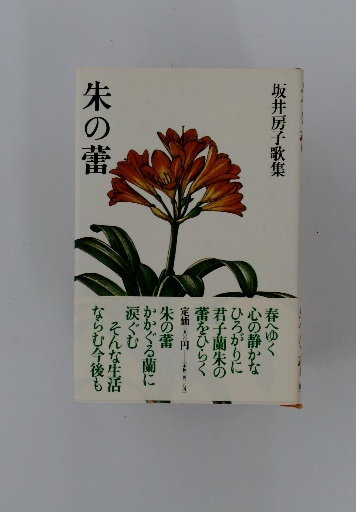 坂井房子歌集
朱の蕾
春へゆく
心の静かな
ひろがりに
君子蘭朱の
蕾をひらく
定価
円
朱の蕾
かかぐる蘭に
涙ぐむ
そんな生活
ならむ今後も